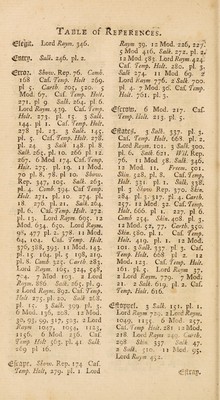 TABLE OF REFERENCES.
Elegit. Lord Raym. 346.
Entry. Salk. 246. pl. 2.
Error. Show. Rep. 76. Comb.
168 Cas. Temp. Holt 269.
pl 5. Carth. 205, 520. 5
Mod. 67. Cas. Temp. Holt.
271, pl 9 Salk. 264. pl 6.
Lord Raym. 439. Cas. Temp.
Holt. 273. pl 3 Salk.
144. pl 2. Cas. Temp. Holt.
278 pl. 23. 3 Salk. 145.
pl 5. Cas. Temp. Holt. 278
pl. 24. 3 Salk. 148 pl. 8
Salk. 265, pl. 10. 266 pl 12.
267. 6 Mod 174. Cas. Temp.
Holt. 275. pl 19. 11 Mod.
70 pl. 8, 78. pl. 10. Show.
Rep. 347, 105. Salk. 263.
pl. 4. Comb. 354. Cas. Temp.
Holt. 271. pl. 10 274. pl.
18 276. pl. 21. Salk. 264,
pl. 6. Cas. Temp. Holt. 272.
pl. 13. Lord Raym. 695. 12
Mod. 634, 650. Lord Raym.
96, 477 pl 2. 378. 11 Mod.
64, 104. Cas. Temp. Holt.
379, 388, 393, 11 Mod. 143.
pl. 15 164. pl. 5 198, 219.
pl. 8. Comb. 325. Carth. 283.
Lord Raym. 105, 524, 548,
774. 7 Mod 103. 2 Lord
Raym. 886. Salk. 265. pl. 9.
2 Lord Raym. 892. Cas. Temp.
Holt 275. pl. 20. Salk. 268.
pl. 15. 3 Salk. 399 pl. 3.
6 Mod. 136, 208, 12 Mod.
30, 93, 99, 317, 525. 2 Lord
Raym. 1047, 1094, 1123,
1156. 6 Mod. 256. Cas.
Temp Holt 563. pl. 41 Salk.
269 pl 16.
Escape. Show. Rep. 174 Cas.
Temp. Holt, 279. pl. 1 Lord
Raym 39. 12 Mod. 226, 227.
5 Mod 416. Salk. 272. pl. 2.
12 Mod. 583. Lord Raym. 424.
Cas. Temp. Holt. 280. pl. 3.
Salk 274. 11 Mod. 69. 2
Lord Raym 776. 2 Salk. 700.
pl. 4. 7 Mod. 36. Cas. Temp.
Holt. 281.
Escrow. 6 Mod. 217. Cas.
Temp. Holt. 213. pl. 5.
Estates. 3 Salk. 337. pl. 3.
Cas. Temp. Holt. 668. pl. 2.
Lord Raym. 101. 3 Salk. 300.
76, 11 Mod. 58. Salk. 346.
Skin. 528, pl. 8. Cas. Temp.
Holt. 331. pl. 1. Salk. 338.
257. 12 Mod. 52. Cas. Temp.
Comb. 254. Skin. 408 pl. 3.
12 Mod. 52, 77. Carth. 350.
Skin. 580. pl. 1. Cas. Temp.
Holt. 419. pl. 1. 12 Mod.
101. 3 Salk. 337. pl. 3. Cas.
Temp. Holt. 668 pl. 2. 12
Mod. 123. Cas. Temp. Holt.
161. pl. 5. Lord Raym. 37.
2 Lord Raym. 779. 7 Mod.
21. 2 Salk. 619. pl 2. Cas.
Temp. Holt. 626.
Estoppel. 3 Salk. 151. pl. 1.
Lord Raym 729. 2 Lord Raym.
1049, 1051. 6 Mod. 257.
Cas. Temp. Holt 281 12 Mod.
228. Lord Raym. 249. Carth.
208 Skin. 337 Salk. 47.
2 Salk. 510. 11 Mod. 95.
Lord Raym. 452.
Estray.